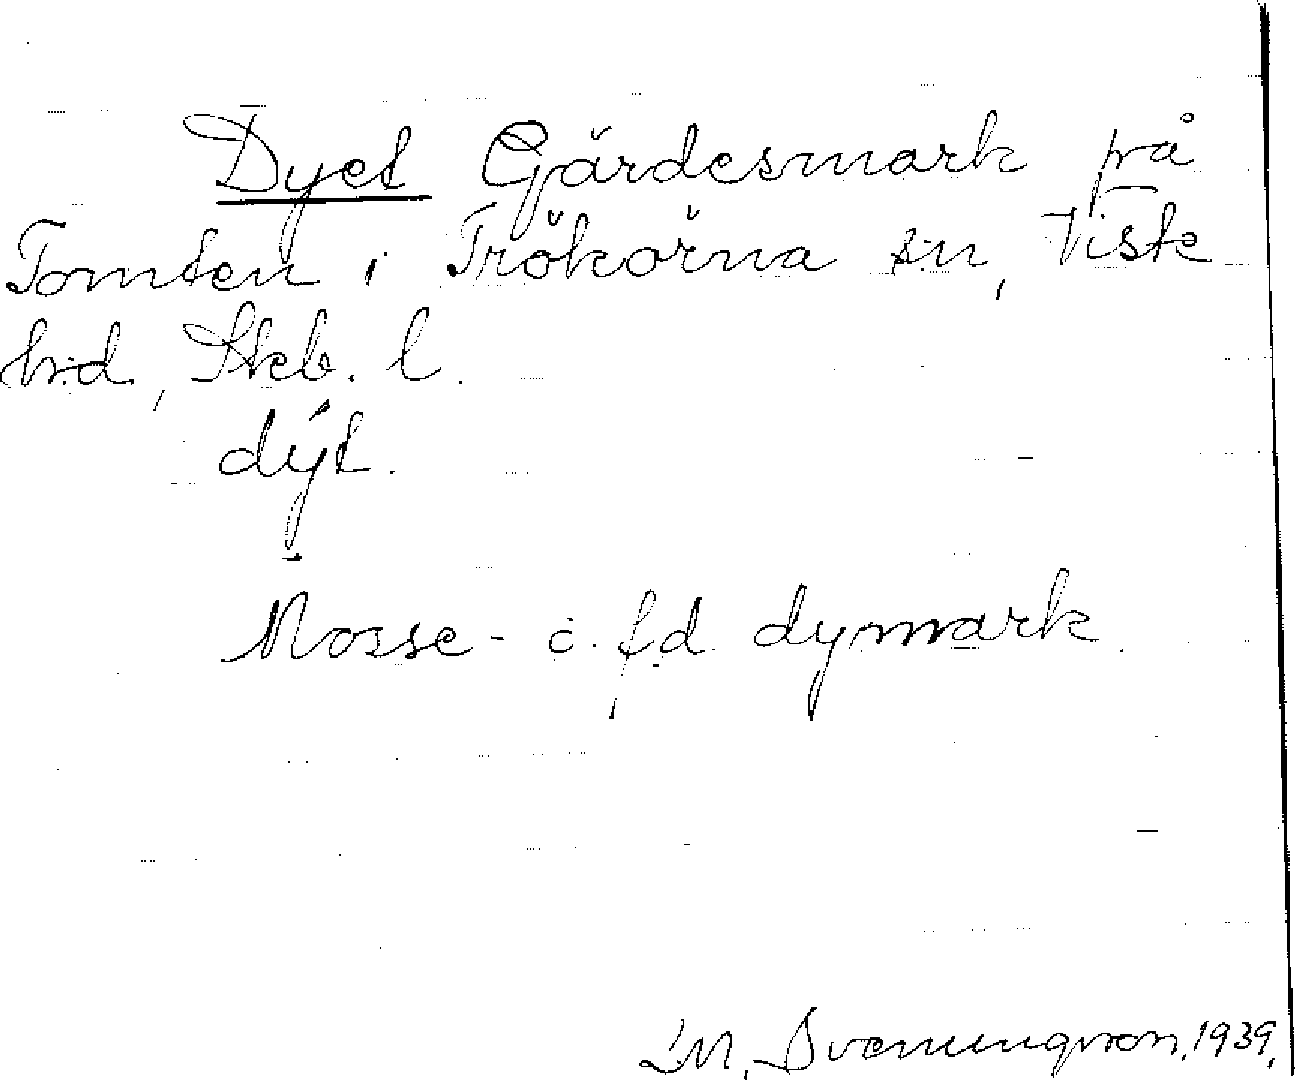 Dyet Gärdesmark på
Tomten i Trökörna sn, Viste
hd, Skb. l.
dýt.
Mosse- o. fd dymark.
M. Svenungsson, 1939.